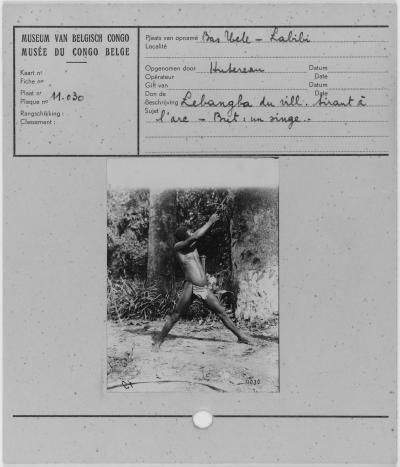 MUSEUM VAN BELGISCH CONGO
MUSÉE DU CONGO BELGE
Kaart nr
Fiche no
Plaat nr
Plaque no 11.030
Rangschikking :
Classement :
Plaats van opname Bas Uele - Labibi
Localité
Opgenomen door Hutereau Datum
Opérateur Date
Gift van Datum
Don de Date
Beschrijving Lebangba du vill. tirant à
Sujet l'arc - But : un singe.-
11030